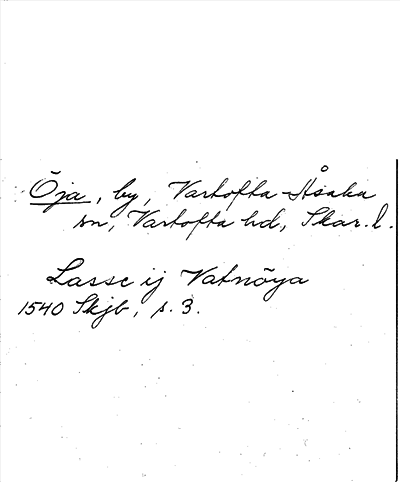 Öja, by, Vartofta-Åsaka
sn, Vartofta hd, Skar. l.
Lasse ij Vatnöya
1540 Skjb, s. 3.